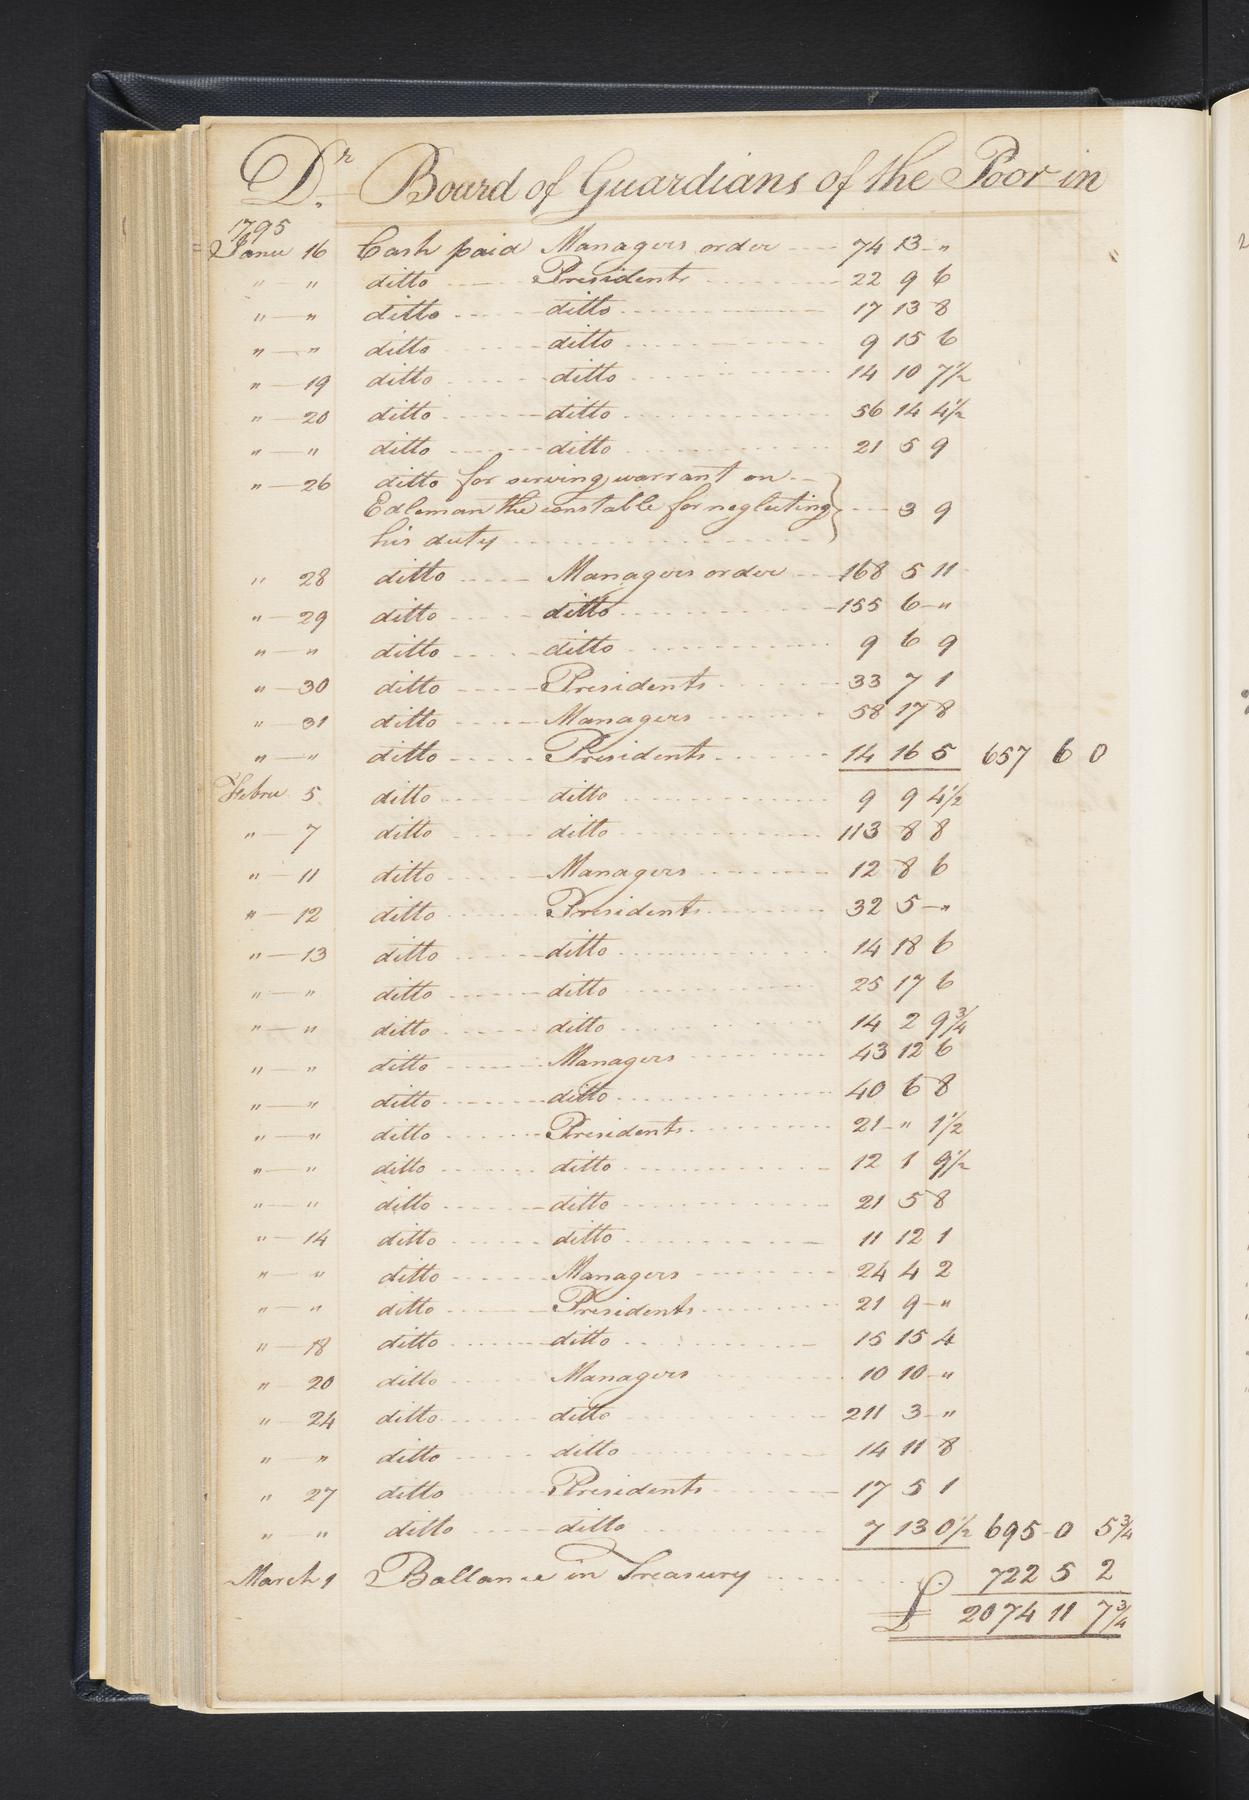 Dr. Board of Guardians of the Poor in
1795
Janu 16 Cash paid Managers order 74 13 "
" " ditto Presidents 22 9 6
" " ditto ditto 17 13 8
" " ditto ditto 9 15 6
" 19 ditto ditto 14 10 7½
" 20 ditto ditto 56 14 4½
" " ditto ditto 21 5 9
" 26 ditto for serving warrant on
Edleman the constable for neglecting 3 9
his duty
" 28 ditto Managers order 168 5 11
" 29 ditto ditto 155 6 "
" " ditto ditto 9 6 9
" 30 ditto Presidents 33 7 1
" 31 ditto Managers 58 17 8
" " ditto Presidents 14 16 5 657 6 0
Febru 5 ditto ditto 9 9 4½
" 7 ditto ditto 113 8 8
" 11 ditto Managers 12 8 6
" 12 ditto Presidents 32 5 "
" 13 ditto ditto 14 18 6
" " ditto ditto 25 17 6
" " ditto ditto 14 2 9¾
" " ditto Managers 43 12 6
" " ditto ditto 40 6 8
" " ditto Presidents 21 " 1½
" " ditto ditto 12 1 9½
" " ditto ditto 21 5 8
" 14 ditto ditto 11 12 1
" " ditto Managers 24 4 2
" " ditto Presidents 21 9 "
" 18 ditto ditto 15 15 4
" 20 ditto Managers 10 10 "
" 24 ditto ditto 211 3 "
" " ditto ditto 14 11 8
" 27 ditto Presidents 17 5 1
" " ditto ditto 7 13 0½ 695 0 5¾
March 1 Ballance in Treasury 722 5 2
£ 2074 11 7¾